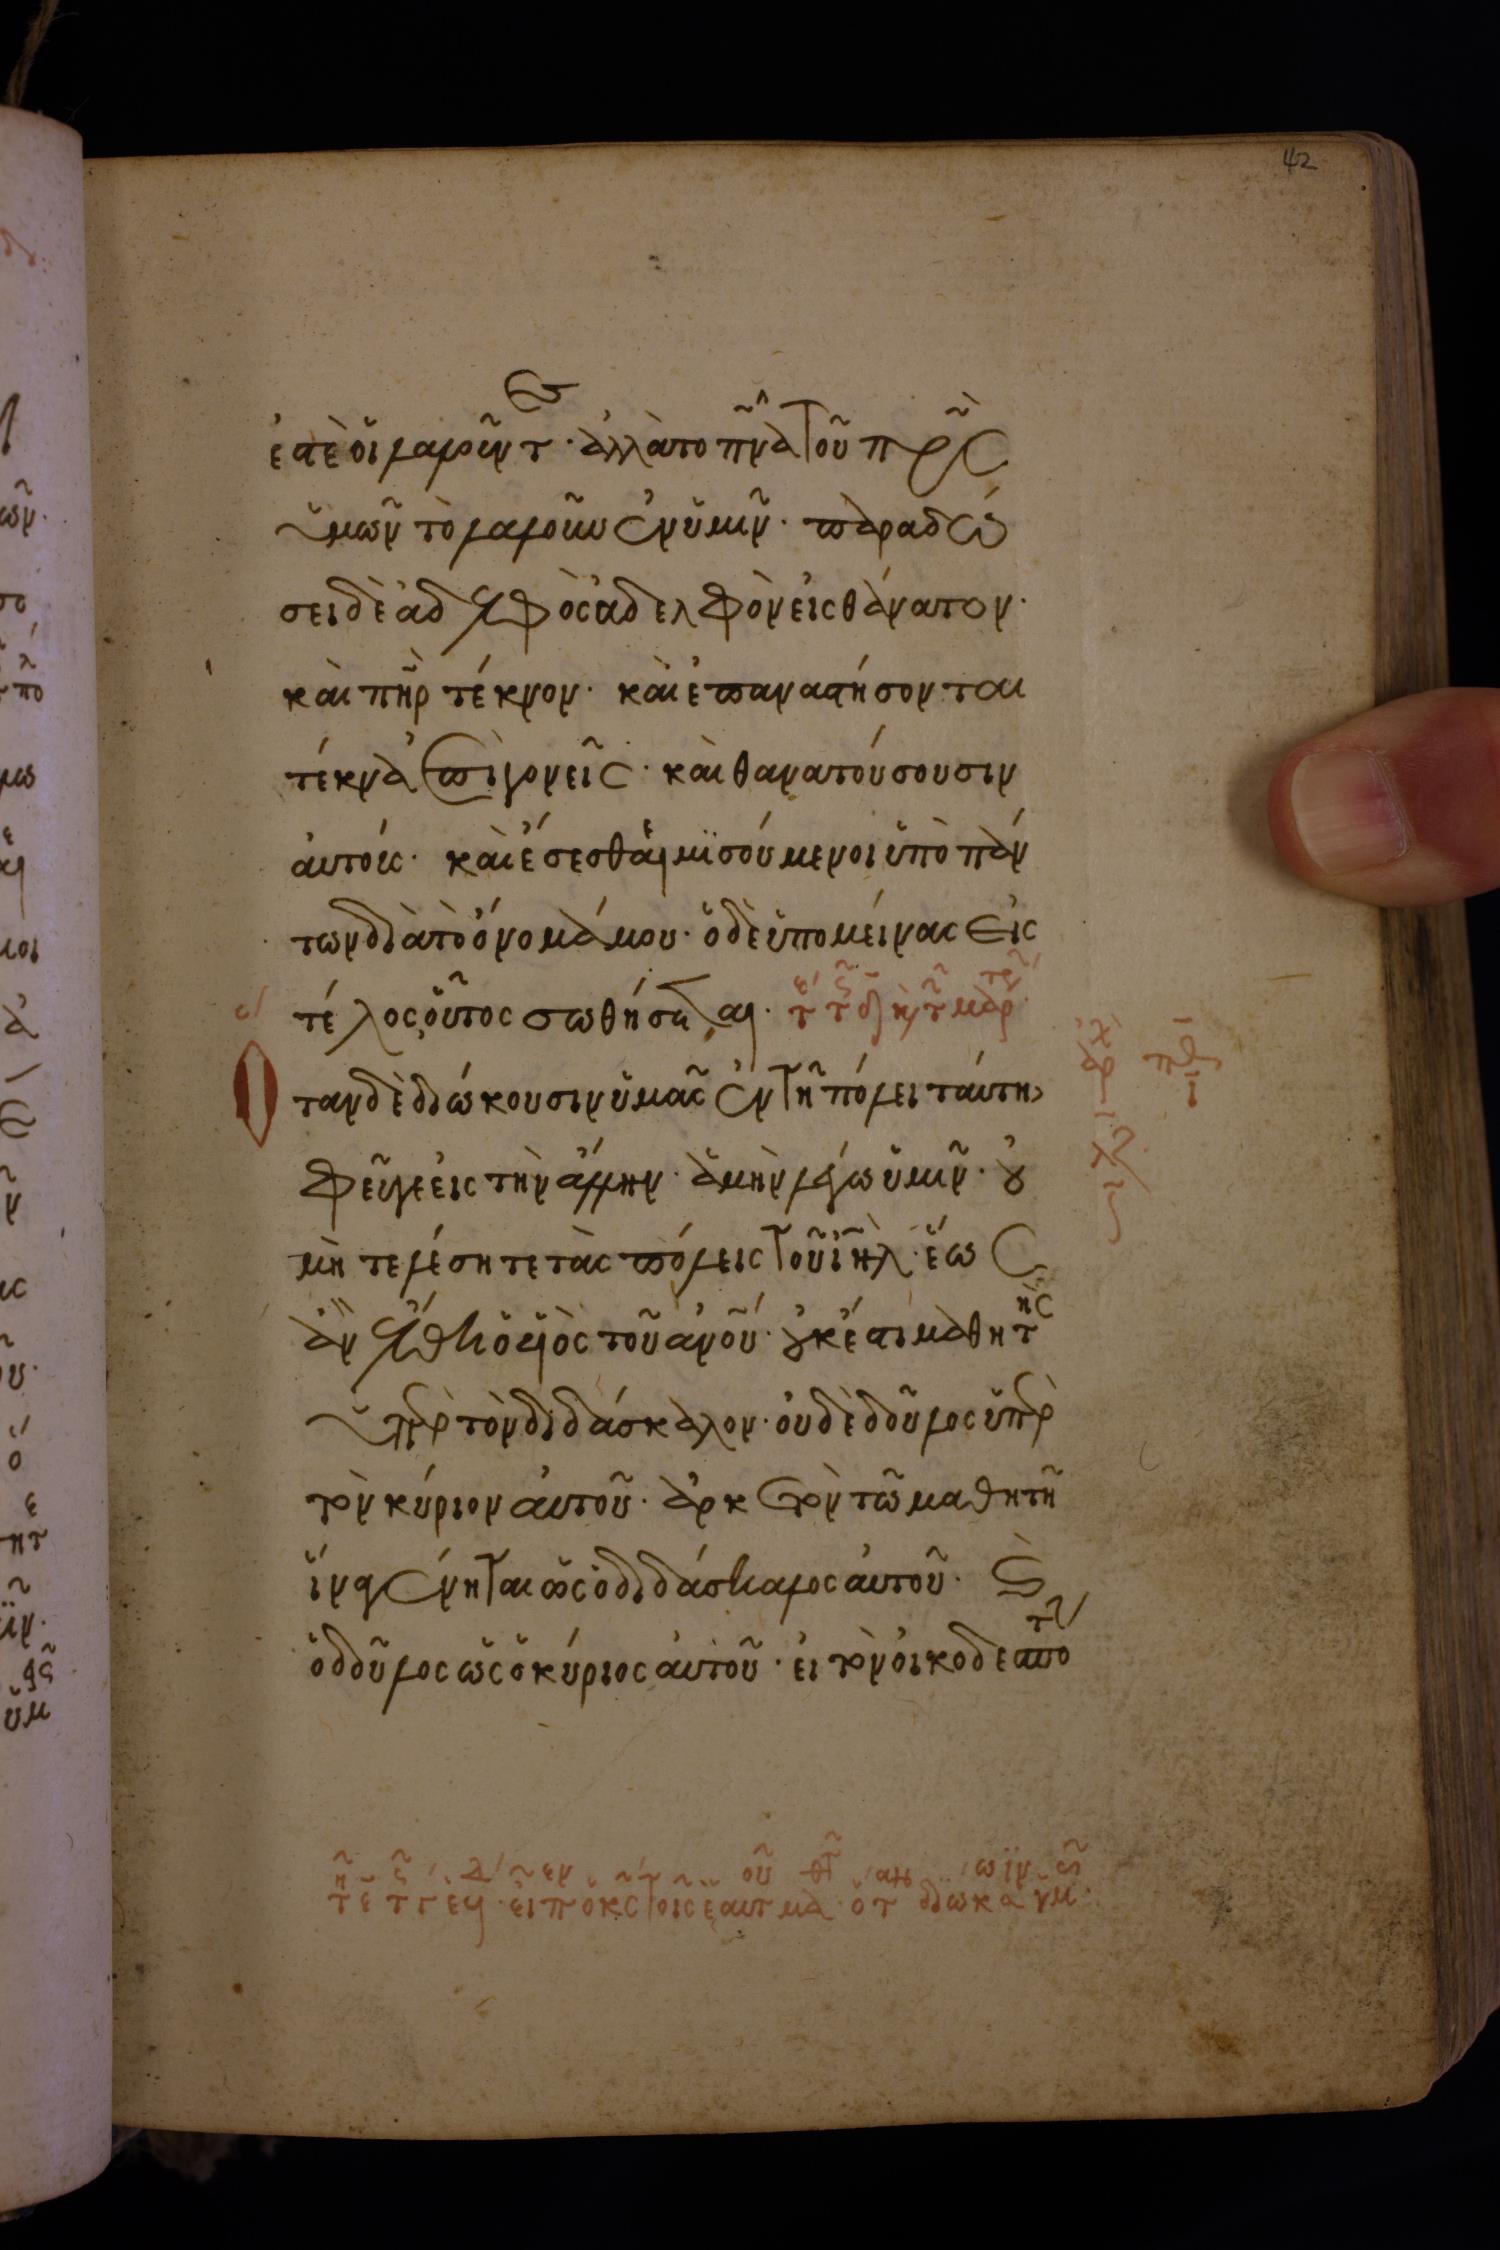 42
ἐστὲ οἱ λαλοῦντες· ἀλλὰ τὸ πνα τοῦ πρς
ὑμῶν τὸ λαλοῦν ἐν ὑμῖν· παραδώ
σει δὲ ἀδελφὸς ἀδελφὸν εἰς θάνατον·
καὶ πηρ τέκνον· καὶ ἐπαναστήσονται
τέκνα ἐπὶ γονεῖς· καὶ θανατούσουσιν
αὐτούς· καὶ ἔσεσθαι μισούμενοι ὑπὸ πάν
των διὰ τὸ ὄνομά μου· ὁ δὲ ὑπομείνας εἰς
τέλος οὗτος σωθήσεται·
Ὅταν δὲ διώκουσιν ὑμᾶς ἐν τῇ πόλει ταύτη,
φεῦγε εἰς τὴν ἄλλην· ἀμὴν λέγω ὑμῖν· οὐ
μὴ τελέσητε τὰς πόλεις τοῦ ιηλ· ἕως
ἂν ἔλθη ὁ υἱὸς τοῦ ανου· οὐκ ἔστι μαθητὴς
ὑπὲρ τὸν διδάσκαλον· οὐδὲ δοῦλος ὑπὲρ
τὸν κύριον αὐτοῦ· ἀρκετὸν τῶ μαθητῇ
ἵνα γένηται ὡς ὁ διδάσκαλος αὐτοῦ· καὶ
ὁ δοῦλος ὡς ὁ κύριος αὐτοῦ· εἰ τὸν οἰκοδεσπότην